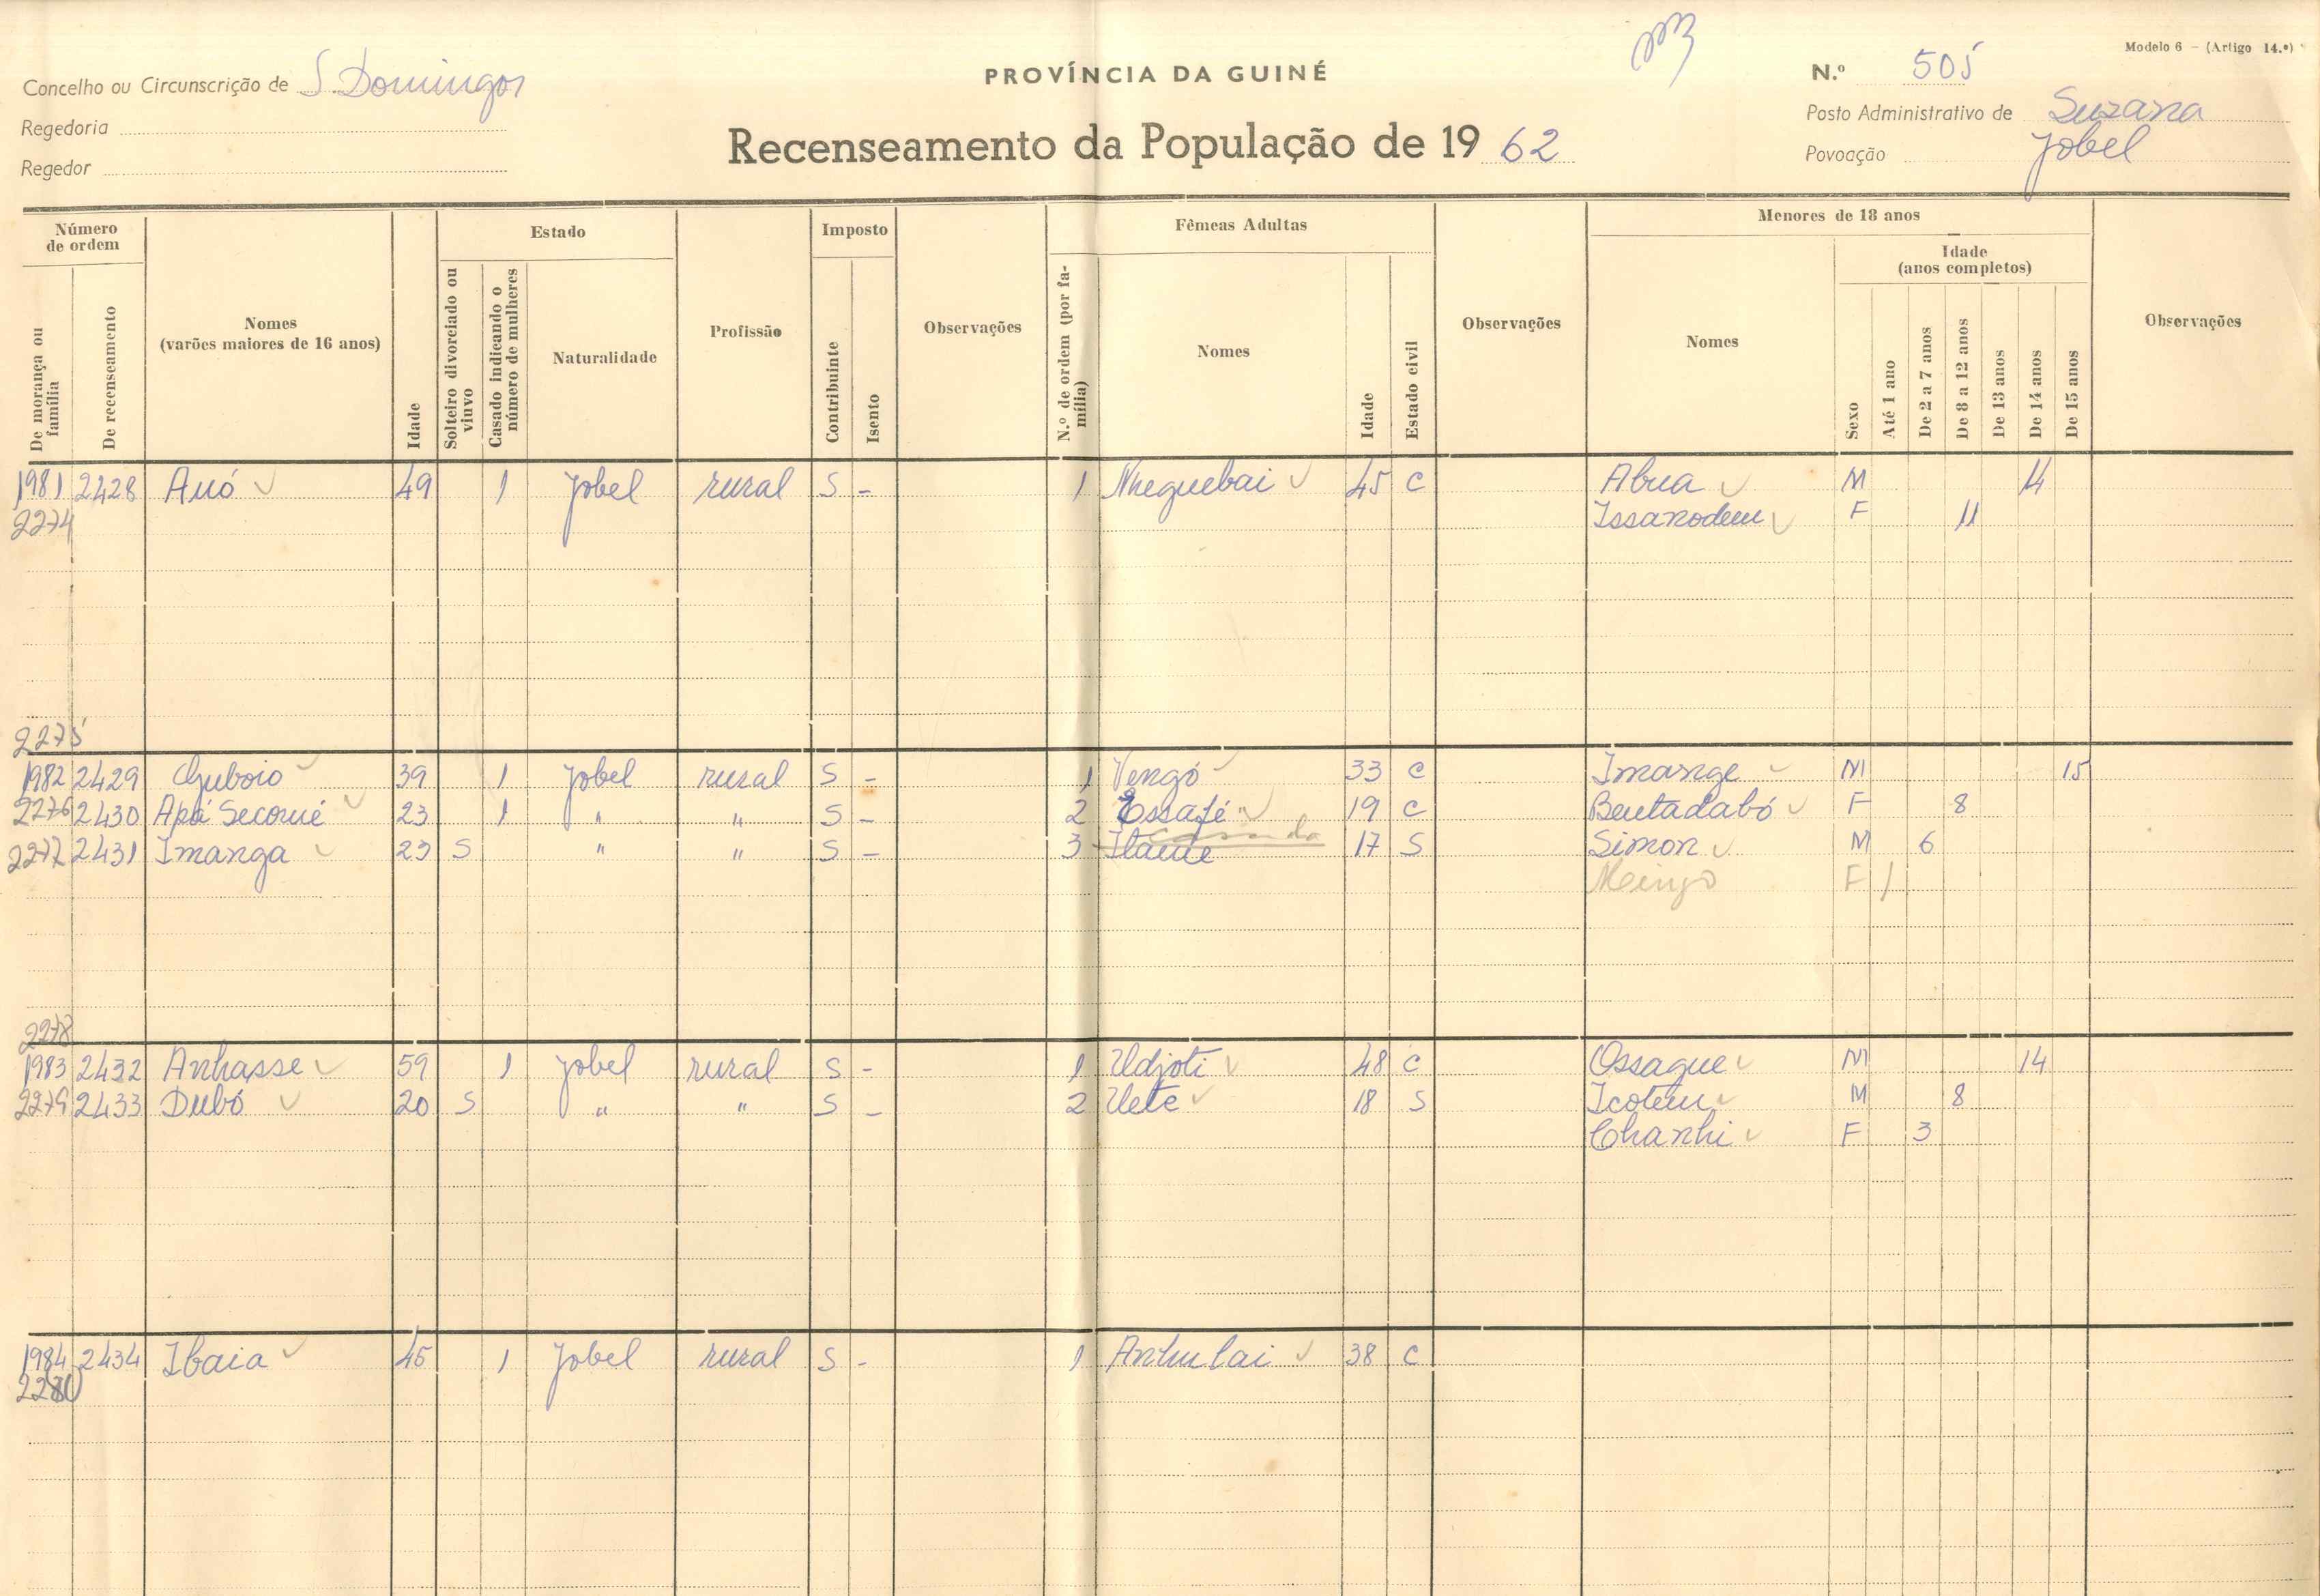 Modelo 6 — (Artigo 14.º)
Concelho ou Circunscrição de S. Domingos
PROVÍNCIA DA GUINÉ
N.º 505
Regedoria
Posto Administrativo de Suzana
Recenseamento da População de 19 62
Regedor
Povoação Jobel
Número de ordem
De morança ou família
De recenseamento
Nomes (varões maiores de 16 anos)
Idade
Estado
Solteiro divorciado ou viuvo
Casado indicando o número de mulheres
Naturalidade
Profissão
Imposto
Contribuinte
Isento
Observações
Fêmeas Adultas
N.º de ordem (por família)
Nomes
Idade
Estado civil
Observações
Menores de 18 anos
Nomes
Sexo
Idade (anos completos)
Até 1 ano
De 2 a 7 anos
De 8 a 12 anos
De 13 anos
De 14 anos
De 15 anos
Observações
1981 2428 Auó 49 1 Jobel rural S - 1 Nheguebai 45 C Abua M 14
2274 Issanodem F 11
2275
1982 2429 39 1 Jobel rural S - 1 Vengó 33 C Imange M 15
2276 2430 Apá Secomé 23 1 " " S - 2 Essafé 19 C Bentadabó F 8
2277 2431 Imanga 23 S " " S - 3 Itame 17 S Simon M 6
F 1
2278
1983 2432 Anhasse 59 1 Jobel rural S - 1 Udjoti 48 C Ossague M 14
2279 2433 Dubó 20 S " " S - 2 Uete 18 S Icotem M 8
Chanhi F 3
1984 2434 Ibaia 45 1 Jobel rural S - 1 Anhulai 38 C
2280